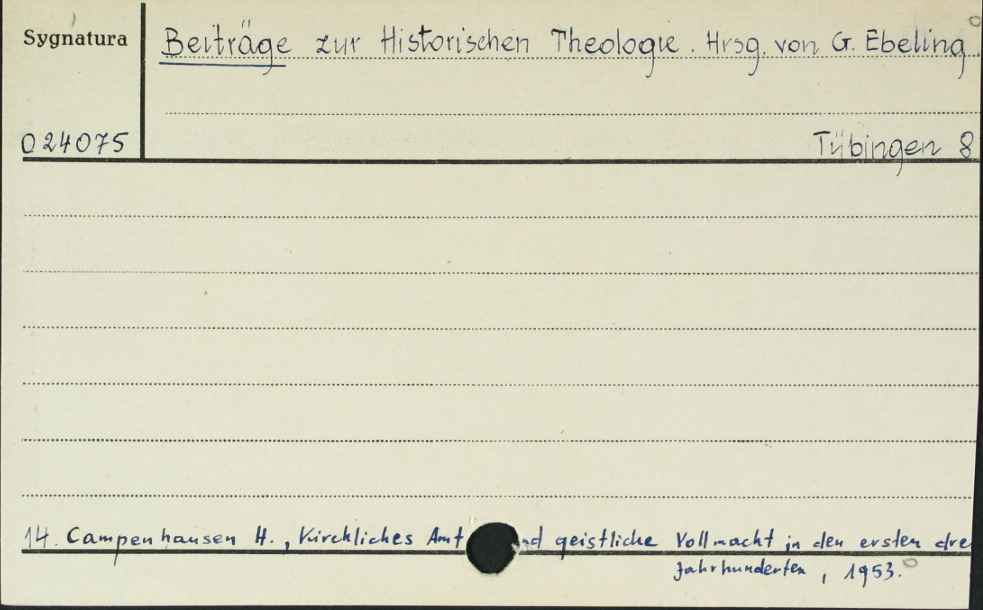 Sygnatura
Beiträge zur Historischen Theologie. Hrsg. von G. Ebeling.
024075
Tübingen 8
14. Campenhausen H., Kirchliches Amt nd geistliche Vollmacht in den ersten dre
Jahrhunderten, 1953.